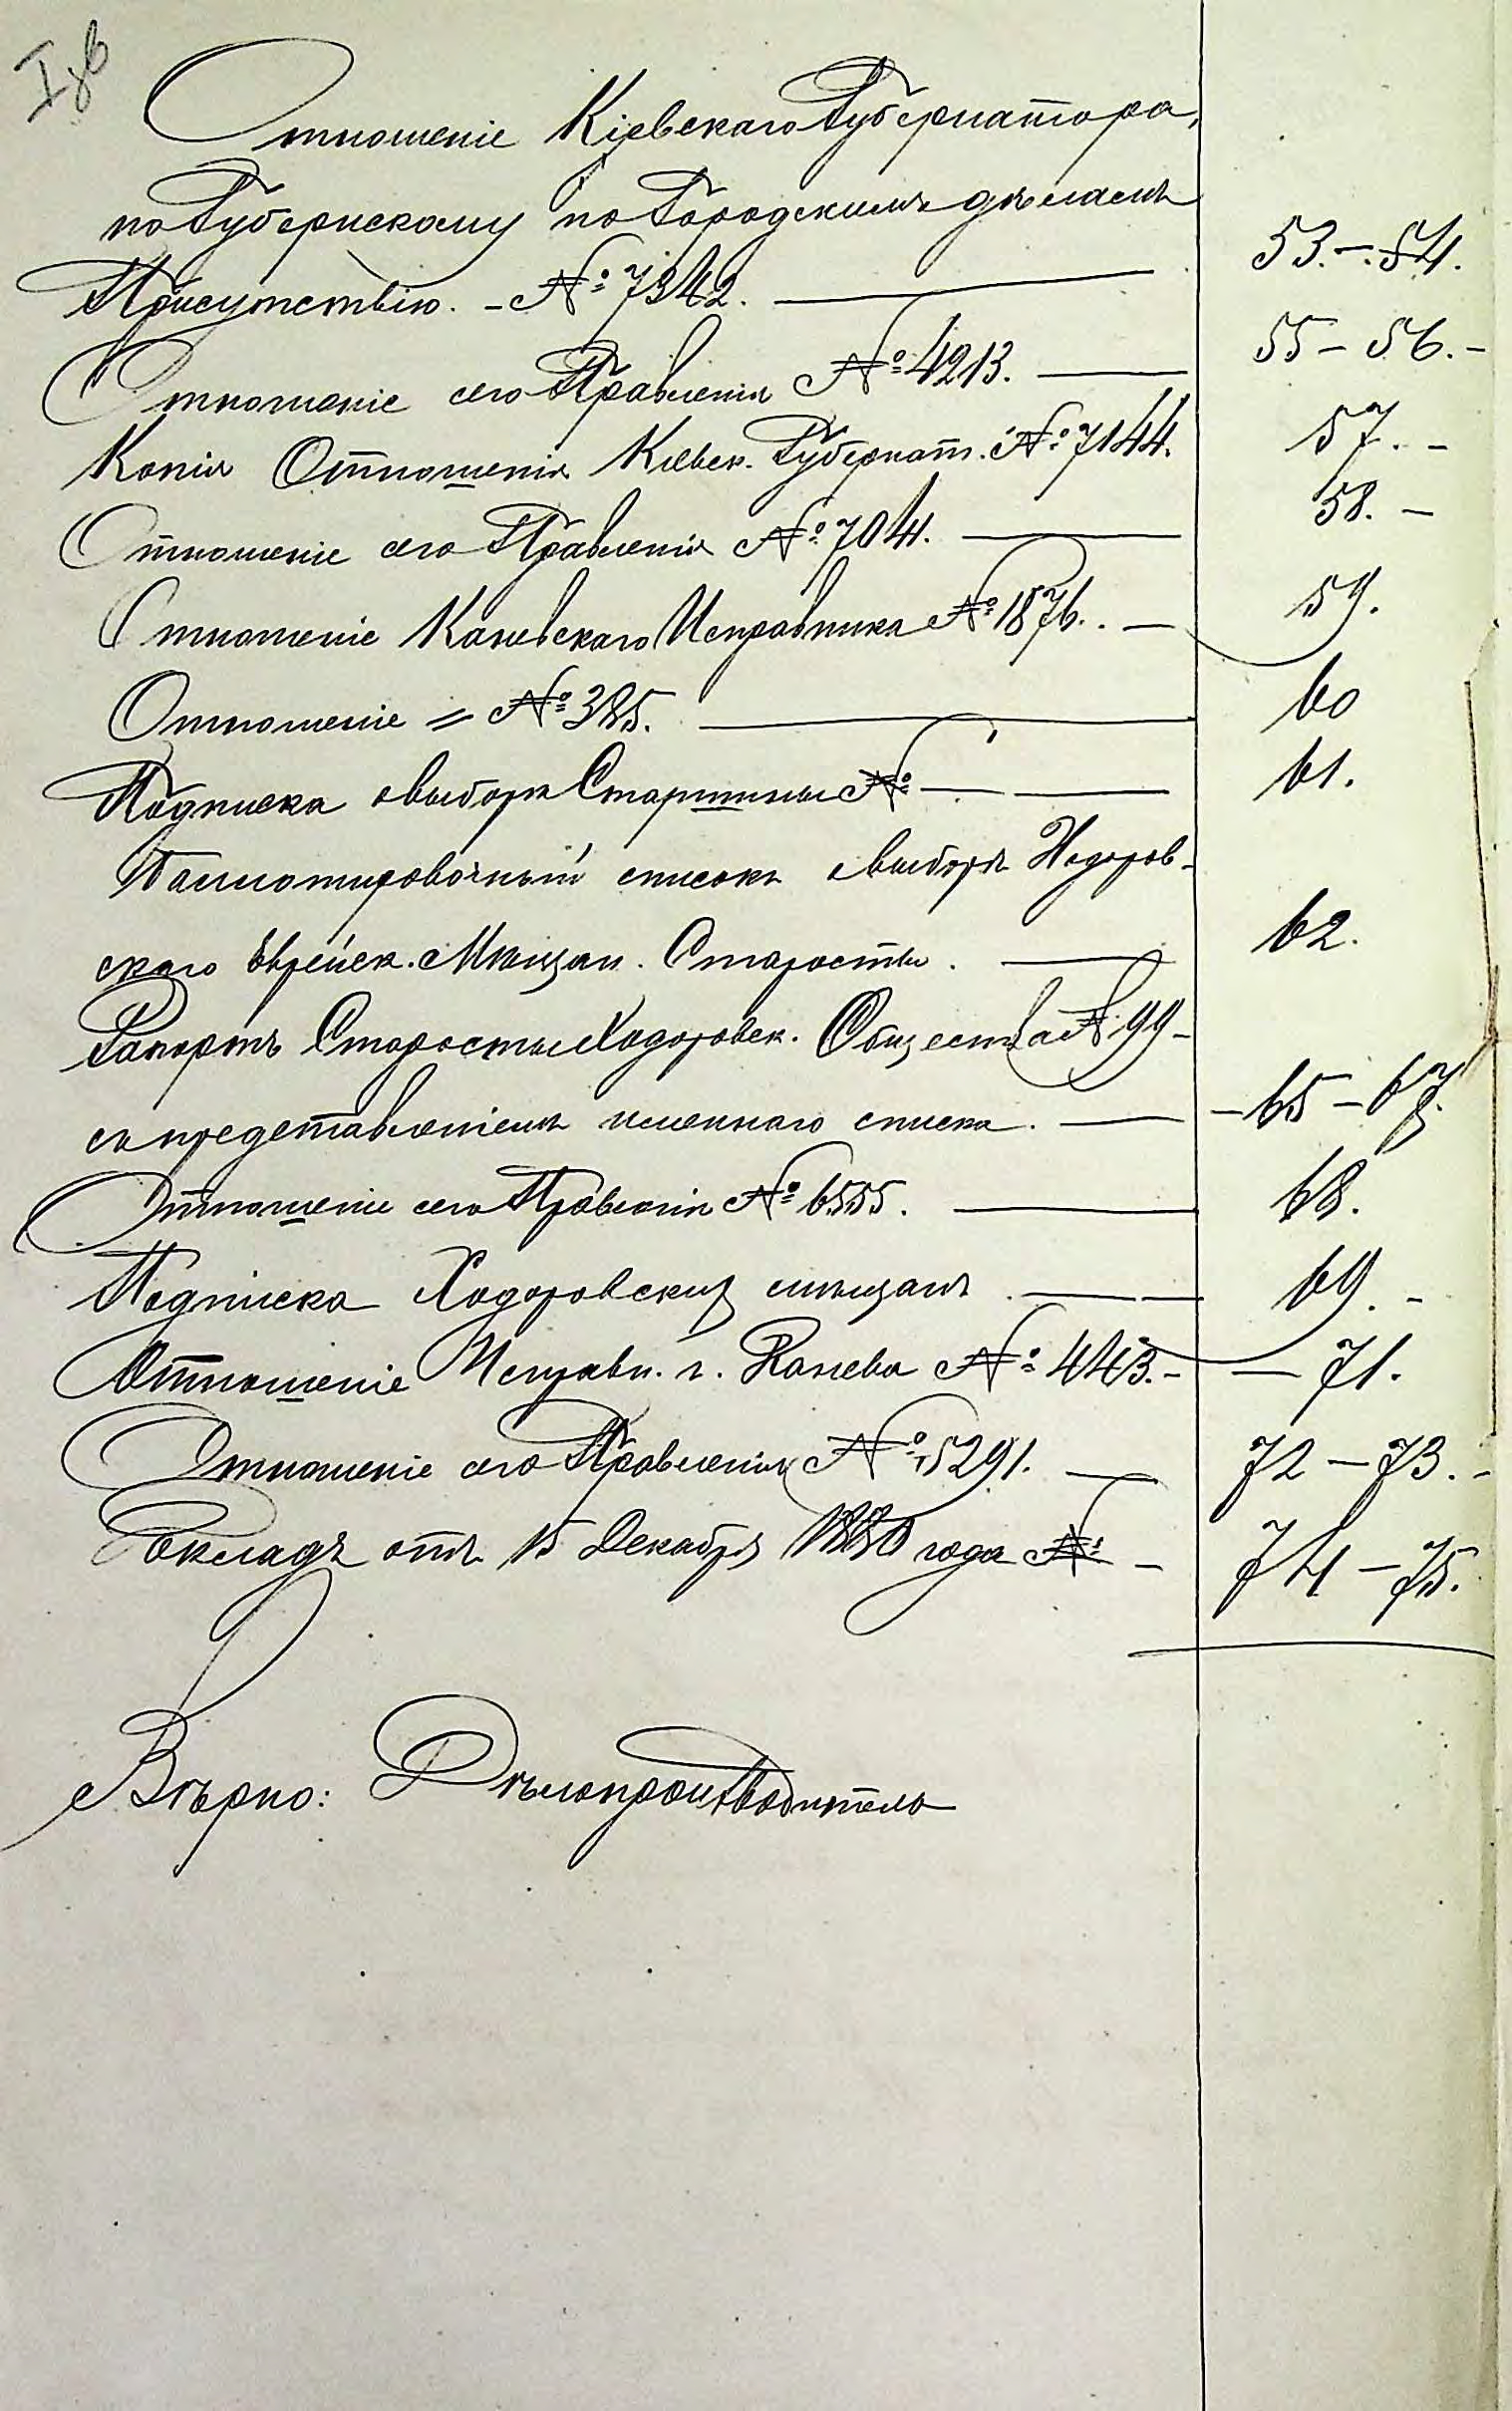 Отношеніе Кіевскаго Губернатора,
по Губернскому по Городскимъ дѣламъ
Присутствію. - № 7342. 53.-54.
Отношеніе сего Правленія № 4213. 55-56.-
Копія Отношенія Кіевск. Губернат. № 7144. 57.-
Отношеніе сего Правленія № 704. 58.-
Отношеніе Каневскаго Исправника № 1876. - 59.
Отношеніе = № 385. 60
Подписка о выборѣ Старшины № - 61.
Баллотировочный списокъ о выборѣ Ходоров-
скаго Еврейск. Мѣщан. Старосты. 62.
Рапортъ Старосты Ходоровск. Общества № 99-
съ представленіемъ именнаго списка. -65-67.
Отношеніе сего Правленія № 6555. 68.
Подписка Ходоровских мѣщанъ. 69.-
Отношеніе Исправн. г. Канева № 443.- -71.
Отношеніе сего Правленія № 5291. 72-73.-
Докладъ отъ 15 Декабря года № - 74-75.
Вѣрно: Дѣлопроизводитель